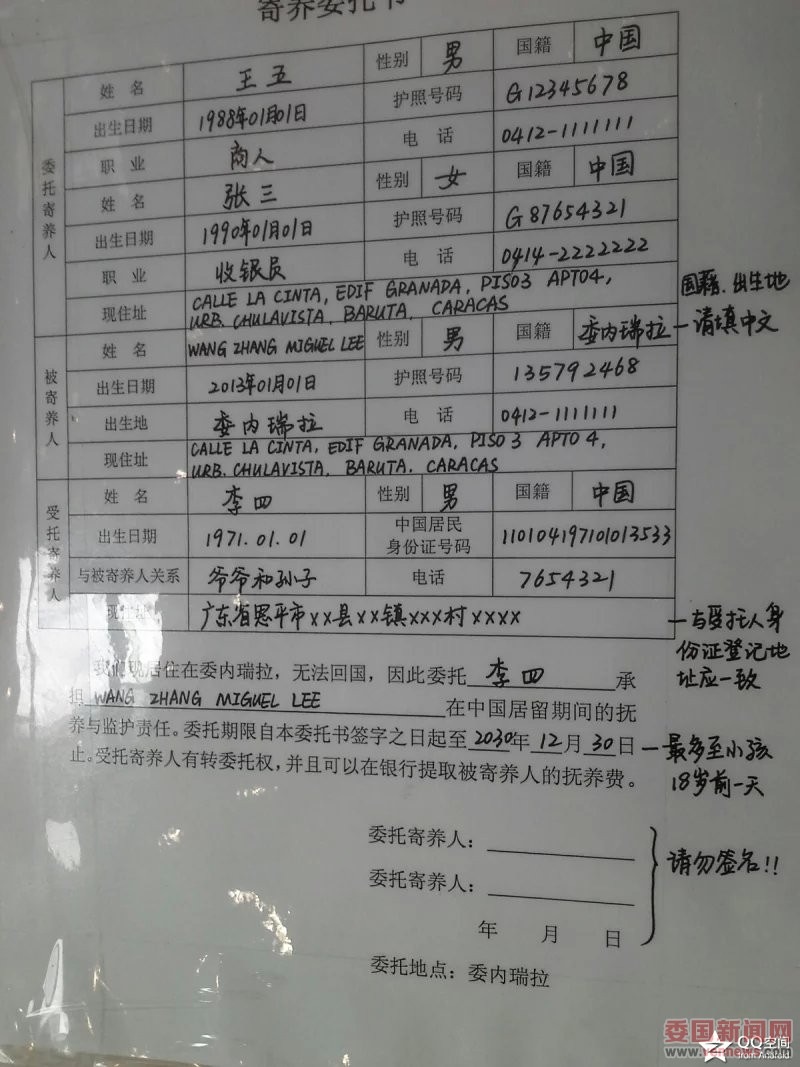 寄养委托书
委托寄养人
姓 名 王五 性别 男 国籍 中国
出生日期 1988年01月01日 护照号码 G12345678
职 业 商人 电 话 0412-1111111
姓 名 张三 性别 女 国籍 中国
出生日期 1990年01月01日 护照号码 G87654321
职 业 收银员 电 话 0414-2222222
现住址 CALLE LA CINTA, EDIF GRANADA, PISO3 APTO4,
URB. CHULAVISTA, BARUTA, CARACAS
国籍、出生地
请填中文
被寄养人
姓 名 WANG ZHANG MIGUEL LEE 性别 男 国籍 委内瑞拉
出生日期 2013年01月01日 护照号码 135792468
出生地 委内瑞拉 电 话 0412-1111111
现住址 CALLE LA CINTA, EDIF GRANADA, PISO 3 APTO 4,
URB. CHULAVISTA, BARUTA, CARACAS
受托寄养人
姓 名 李四 性别 男 国籍 中国
出生日期 1971.01.01 中国居民
身份证号码 110104197101013533
与被寄养人关系 爷爷和孙子 电话 7654321
现住址 广东省恩平市××县××镇×××村××××
与受托人身
份证登记地
址应一致
我们现居住在委内瑞拉，无法回国，因此委托 李四 承
担 WANG ZHANG MIGUEL LEE 在中国居留期间的抚
养与监护责任。委托期限自本委托书签字之日起至2030年12月30日
止。受托寄养人有转委托权，并且可以在银行提取被寄养人的抚养费。
最多至小孩
18岁前一天
委托寄养人：
委托寄养人：
请勿签名!!
年 月 日
委托地点：委内瑞拉
委国新闻网
www.vennews.com
QQ空间
from Android